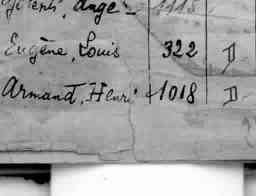 Ange - 1115
Eugène, Louis 322 D
Armand, Henri 1018 D